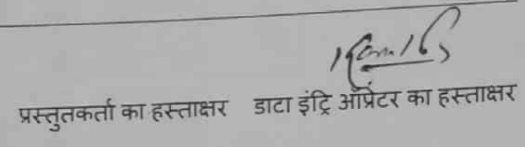 प्रस्तुतकर्ता का हस्ताक्षर डाटा इंट्रि ऑप्रेटर का हस्ताक्षर